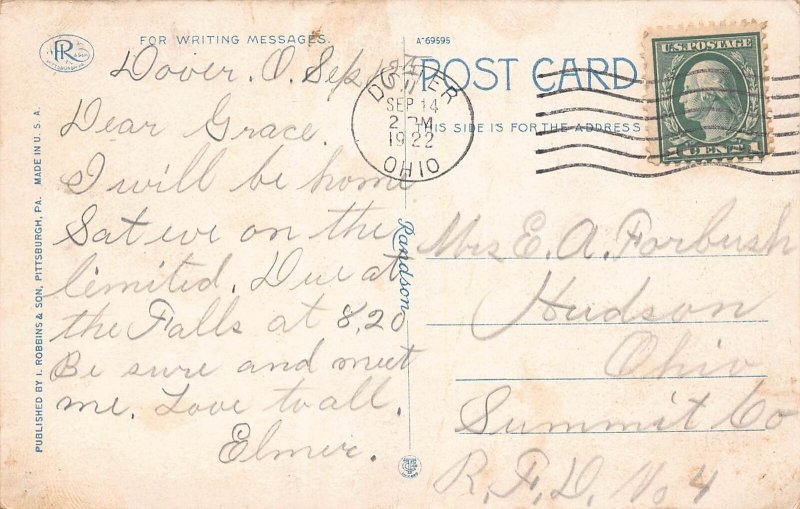 FOR WRITING MESSAGES.
A-69595
POST CARD
THIS SIDE IS FOR THE ADDRESS
U.S. POSTAGE
1 CENT 1
DOVER
SEP 14
2 PM
1922
OHIO
Dover, O. Sep
Dear Grace.
I will be home
Sat eve on the
limited. Due at
the Falls at 8,20
Be sure and meet
me. Love to all.
Elmer.
Mrs E. A. Forbush
Hudson
Ohio
Summit Co
R.F.D. No 4
Randson
PUBLISHED BY I. ROBBINS & SON, PITTSBURGH, PA. MADE IN U. S. A.